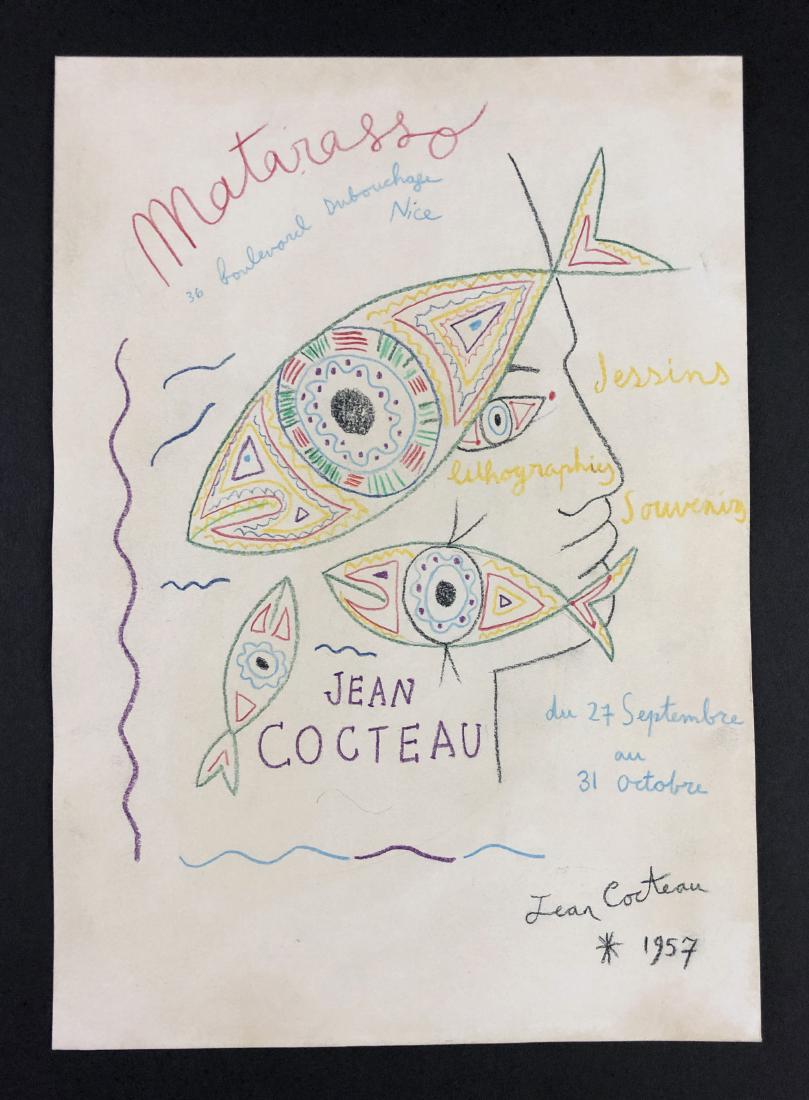 Matarasso
36 boulevard Dubouchage
Nice
dessins
lithographies
Souvenirs
JEAN
COCTEAU
du 27 Septembre
au
31 octobre
Jean Cocteau
* 1957